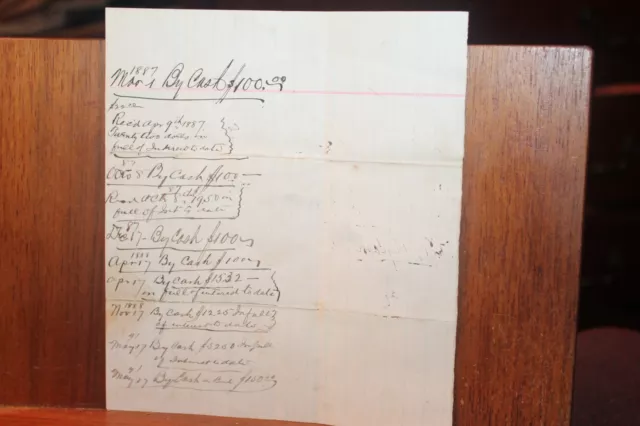 1887
Mar 1 By Cash $100.00
Rec'd Apr 9th 1887
Twenty two dolls in
full of Interest to date
87
Octo 8 By Cash $100 —
Rec'd Oct 8 19.50 in
full of Int to date
87
Dec 17 - By Cash $100
1888
Apr 17 By Cash $100
Apr 17 By Cash $15.32 —
in full of interest to date
1888
Nov 17 By Cash $12.25 In full
of interest to date
91
May 17 By Cash In full
of Interest to date
91
May 27 By Cash